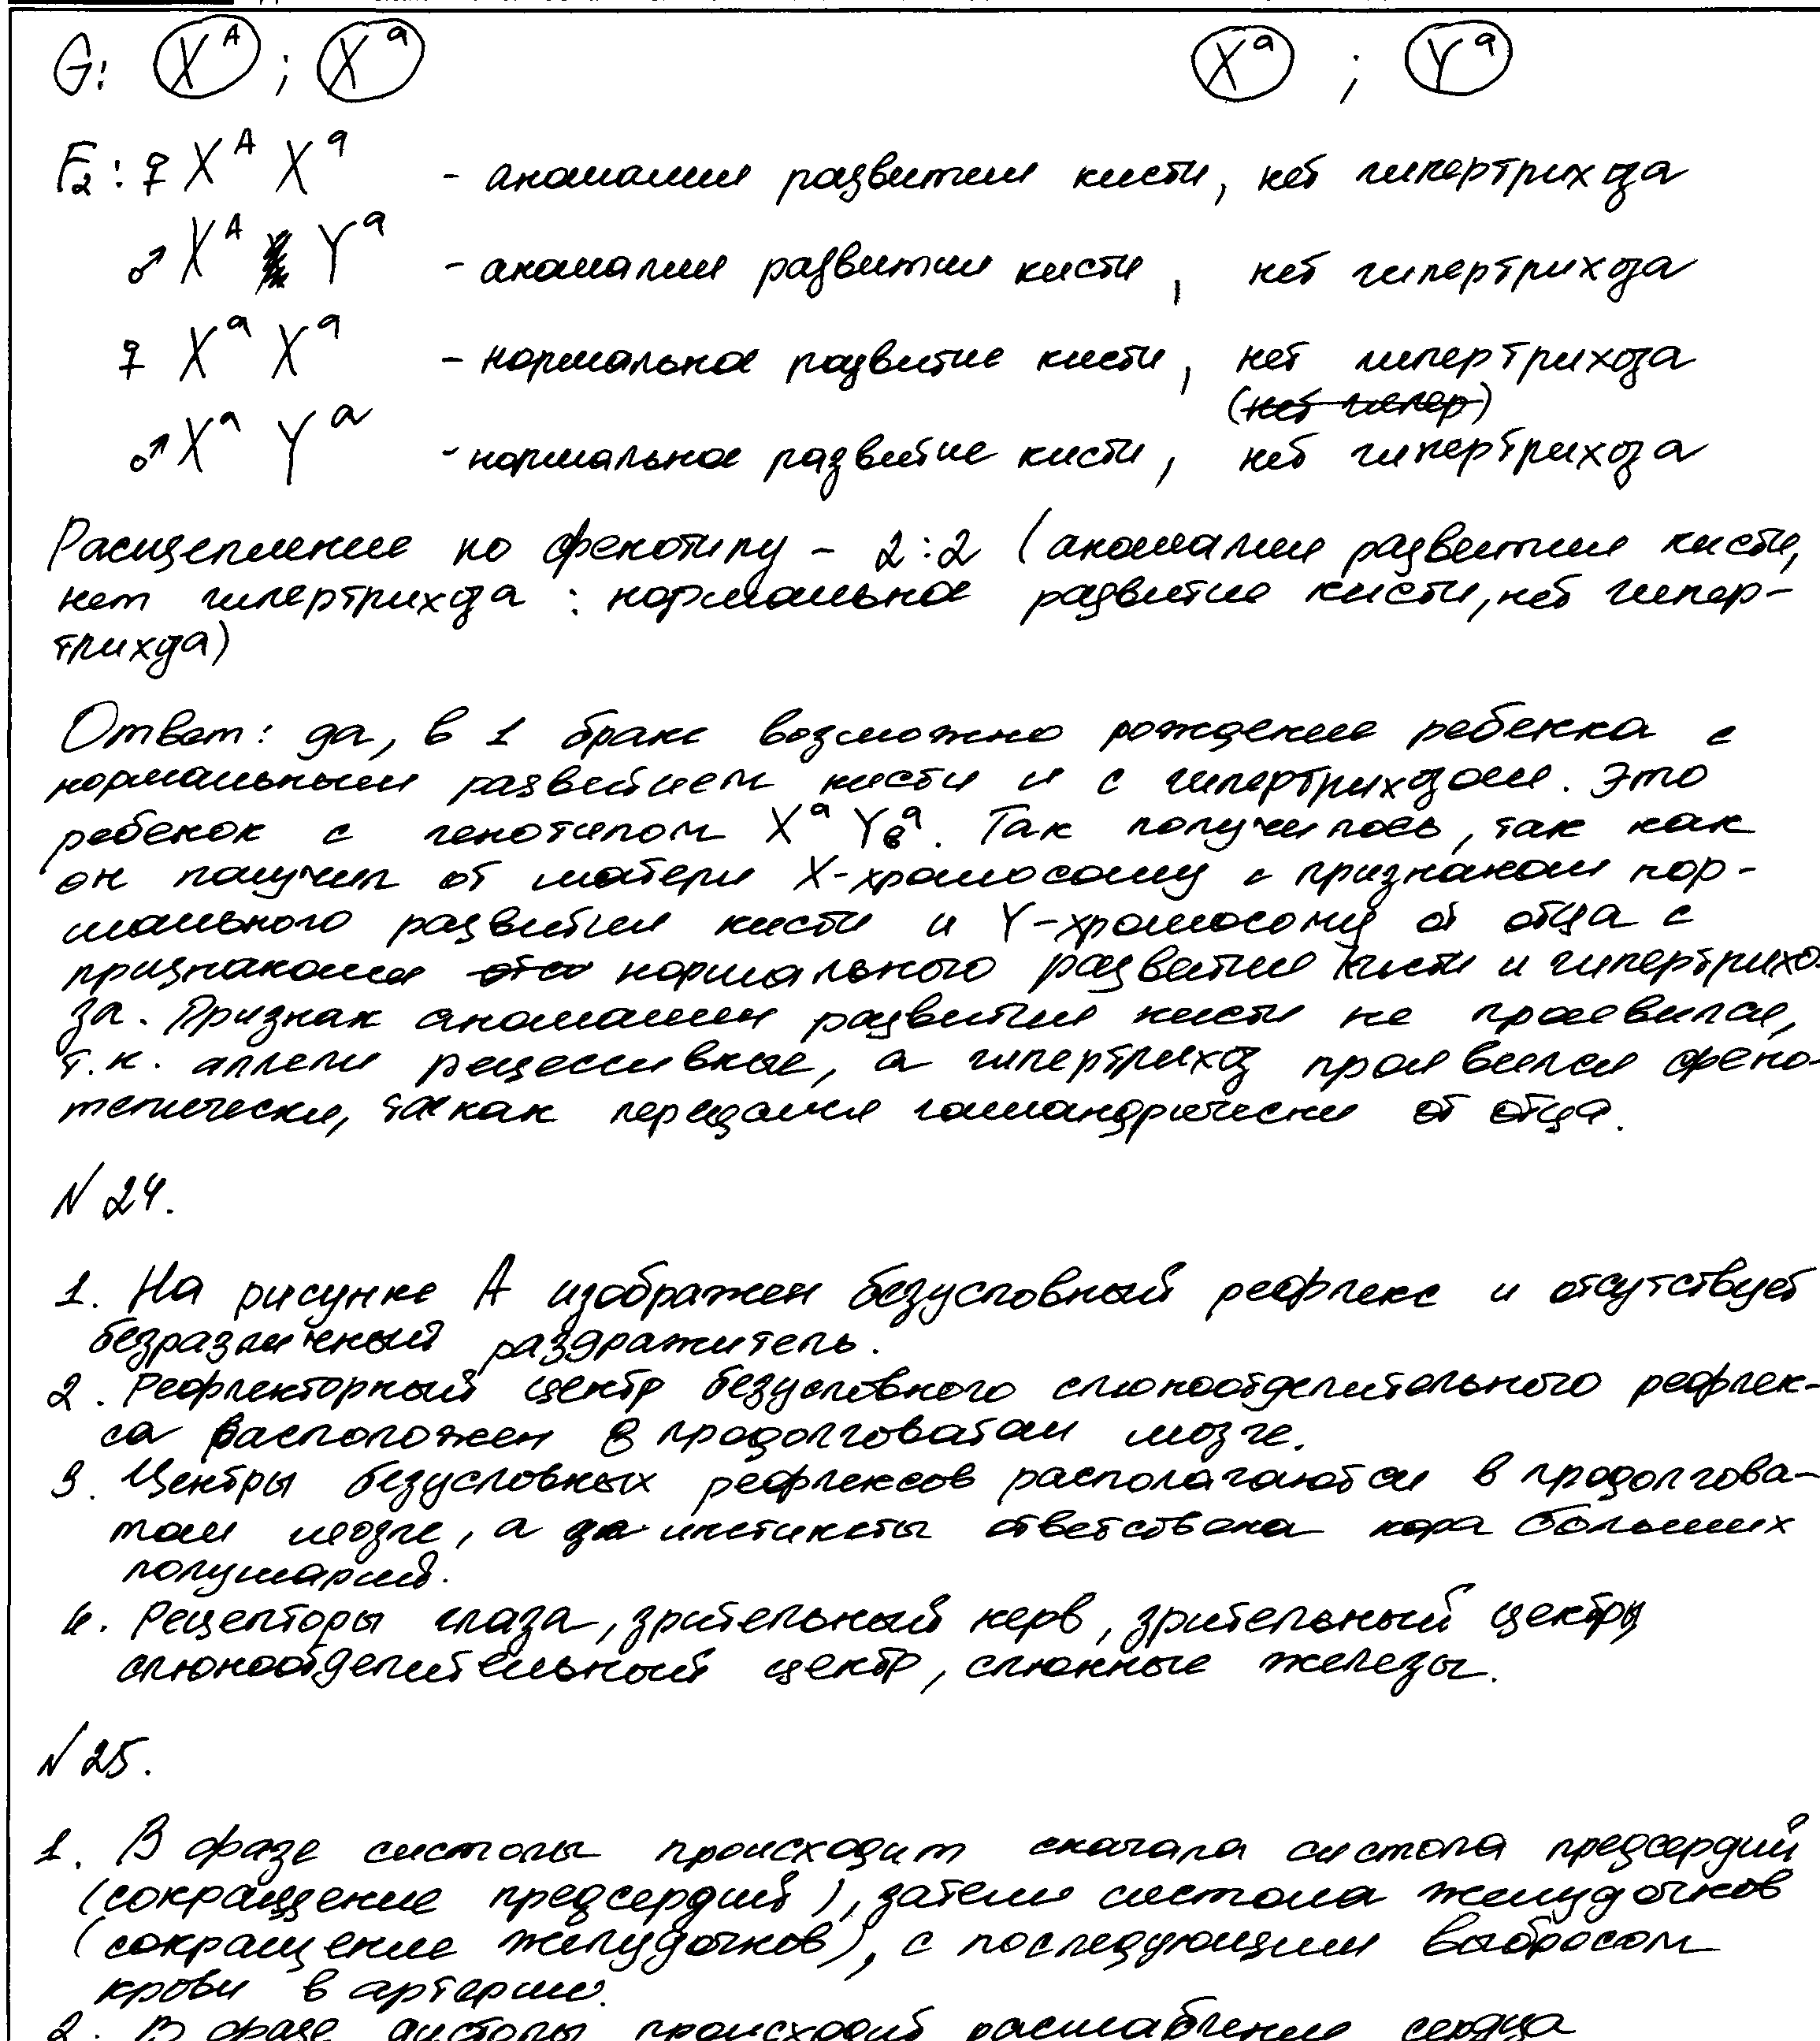 G: X^A ; X^a X^a ; Y^a
F₂: ♀ X^A X^a - аномалии развития кисти, нет гипертрихоза
♂ X^A Y^a - аномалии развития кисти, нет гипертрихоза
♀ X^a X^a - нормальное развитие кисти, нет гипертрихоза
(нет гипер)
♂ X^a Y^a - нормальное развитие кисти, нет гипертрихоза
Расщепление по фенотипу - 2:2 (аномалии развития кисти,
нет гипертрихоза : нормальное развитие кисти, нет гипер-
трихоза)
Ответ: да, в 1 браке возможно рождение ребенка с
нормальным развитием кисти и с гипертрихозом. Это
ребенок с генотипом X^a Y_в^a. Так получилось, так как
он получил от матери X-хромосому с признаком нор-
мального развития кисти и Y-хромосому от отца с
признаками нормального развития кисти и гипертрихо-
за. Признак аномалии развития кисти не проявился,
т.к. аллели рецессивные, а гипертрихоз проявился фено-
типически, так как передался голандрически от отца.
N 24.
1. На рисунке А изображен безусловный рефлекс и отсутствует
безразличный раздражитель.
2. Рефлекторный центр безусловного слюноотделительного рефлек-
са расположен в продолговатом мозге.
3. Центры безусловных рефлексов располагаются в продолгова-
том мозге, а за инстинкты ответствена кора больших
полушарий.
4. Рецепторы глаза, зрительный нерв, зрительный центр,
слюноотделительный центр, слюнные железы.
N 25.
1. В фазе систолы происходит сначала систола предсердий
(сокращение предсердий), затем систола желудочков
(сокращение желудочков), с последующим выбросом
крови в артерии.
2. В фазе диастолы происходит расслабление сердца